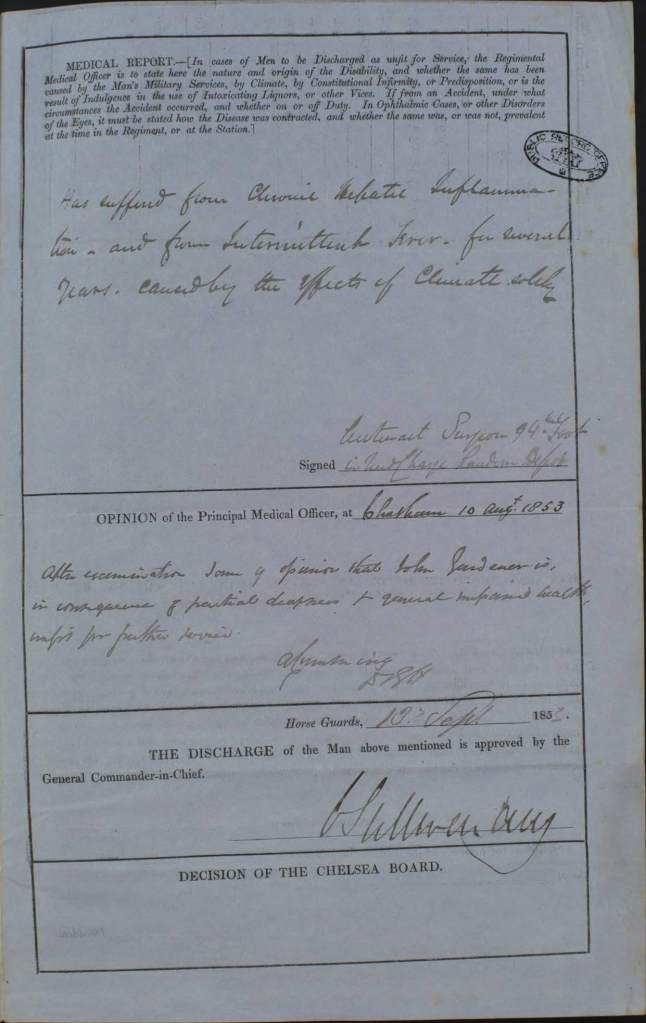 MEDICAL REPORT.—[In cases of Men to be Discharged as unfit for Service, the Regimental
Medical Officer is to state here the nature and origin of the Disability, and whether the same has been
caused by the Man's Military Services, by Climate, by Constitutional Infirmity, or Predisposition, or is the
result of Indulgence in the use of Intoxicating Liquors, or other Vices. If from an Accident, under what
circumstances the Accident occurred, and whether on or off Duty. In Ophthalmic Cases, or other Disorders
of the Eyes, it must be stated how the Disease was contracted, and whether the same was, or was not, prevalent
at the time in the Regiment, or at the Station.]
PUBLIC RECORD OFFICE
Has suffered from Chronic Hepatic Inflamma-
tion - and from Intermittent Fever - for several
years. caused by the effects of Climate solely
Surgeon 94th Foot
Signed in Charge Depot
OPINION of the Principal Medical Officer, at Chatham 10 Augt. 1853
After examination I am of opinion that John Gardener is,
in consequence of partial deafness & general impaired health,
unfit for further service.
Horse Guards, Sept 1853.
THE DISCHARGE of the Man above mentioned is approved by the
General Commander-in-Chief.
DECISION OF THE CHELSEA BOARD.